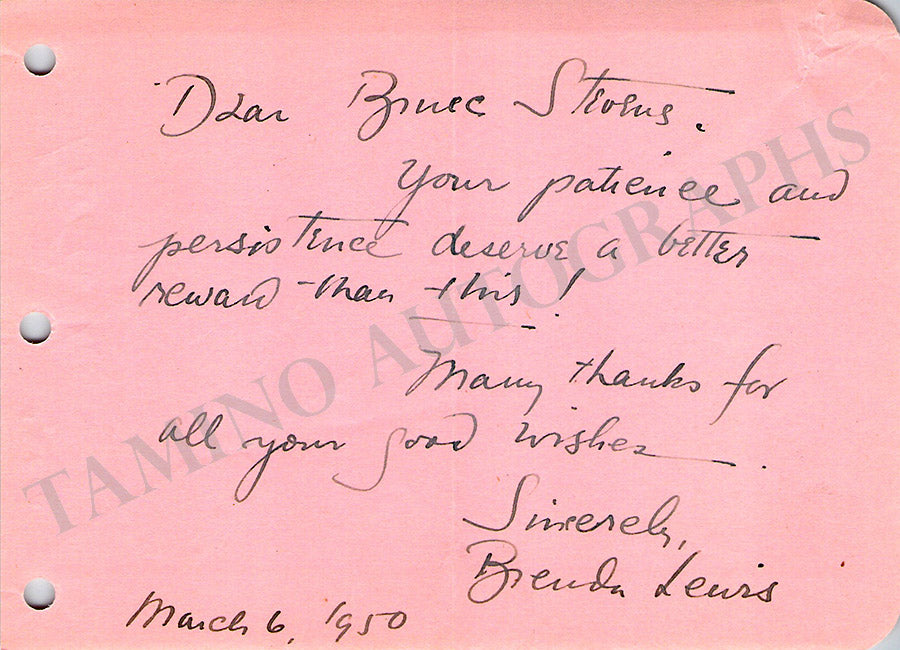 Dear Bruce Stevens.
Your patience and
persistence deserve a better
reward than this!
Many thanks for
all your good wishes.
Sincerely,
Brenda Lewis
March 6, 1950
TAMINO AUTOGRAPHS